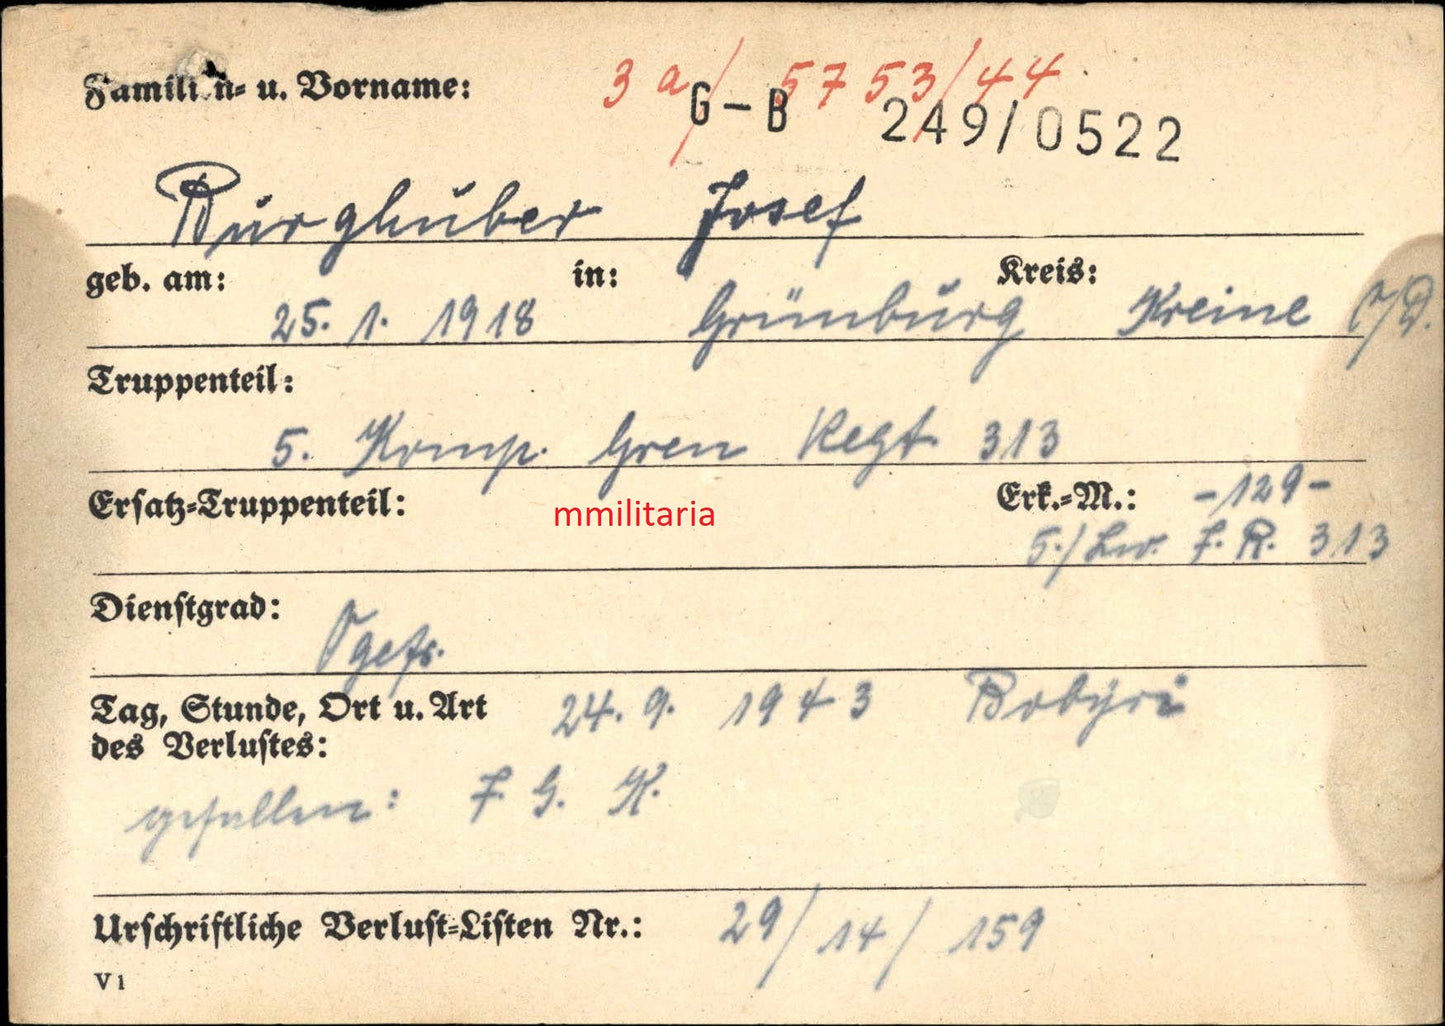 3 a/ 5753/44
G-B 249/0522
Familien- u. Vorname:
Burghuber Josef
geb. am: in: Kreis:
25. 1. 1918 Grünburg Kreine
Truppenteil:
5. Komp. Gren Regt 313
Ersatz-Truppenteil: mmilitaria Erk.-M.: -129-
5./Lw. F. R. 313
Dienstgrad:
Ogefr.
Tag, Stunde, Ort u. Art 24. 9. 1943 Bobyri
des Verlustes:
gefallen: F. G. K.
Urschriftliche Verlust-Listen Nr.: 29/14/159
V1